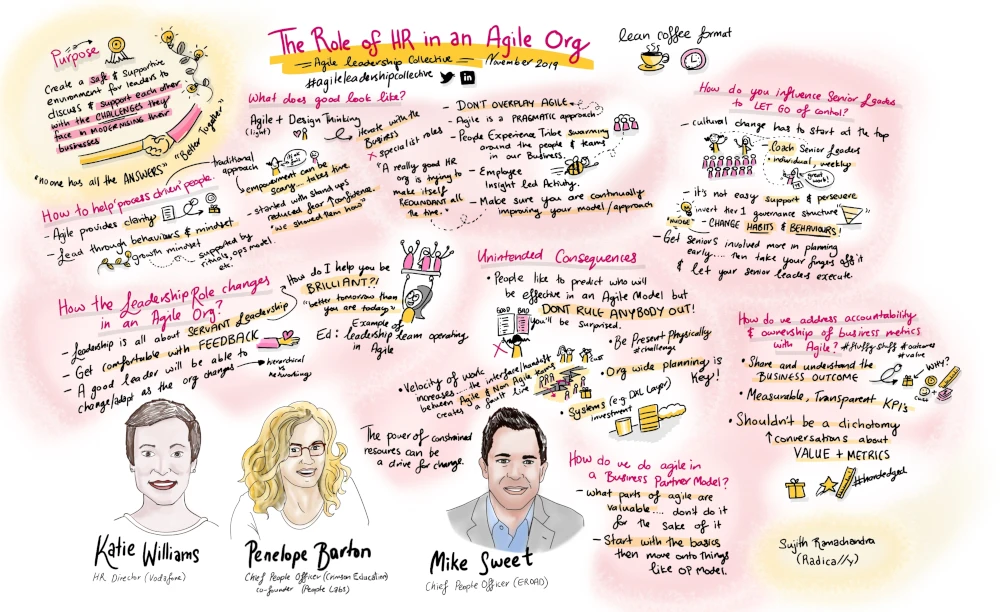 The Role of HR in an Agile Org
Agile Leadership Collective November 2019
#agileleadershipcollective
lean coffee format
Purpose
Create a safe & supportive
environment for leaders to
discuss & support each other
with the CHALLENGES they
face in MODERNISING their
businesses
"no one has all the ANSWERS"
"Better
Together"
How to help process driven people.
- Agile provides clarity
- Lead through behaviours & mindset
growth mindset
supported by
rituals, ops model.
etc.
What does good look like?
Agile + Design Thinking
(light)
iterate with the
Business
x specialist roles
traditional
approach
empowerment can be
scary... takes time
- started with stand ups
reduced fear ↑ confidence.
"we showed them how"
"A really good HR
org is trying to
make itself
REDUNDANT all
the time."
- DON'T OVERPLAY AGILE
- Agile is a PRAGMATIC approach
- People Experience Tribe swarming
around the people & teams
in our Business
- Employee
Insight led Activity.
- Make sure you are continually
improving your model/approach
How do you influence Senior Leades
to LET GO of control?
- cultural change has to start at the top
- Coach Senior Leaders
• individual, weekly
great
work!
- it's not easy support & persevere
invert tier 1 governance structure
"NUDGE"
- CHANGE HABITS & BEHAVIOURS!
- Get seniors involved more in planning
early.... then take your fingers off it
& let your senior leaders execute.
How the Leadership Role changes
in an Agile Org?
- Leadership is all about SERVANT Leadership
- Get comfortable with FEEDBACK
- A good leader will be able to
change/adapt as the org changes
hierarchical
vs
networking
How do I help you be
BRILLIANT?!
"better tomorrow than
you are today"
Example of
Ed: leadership team operating
in Agile
Unintended Consequences
• People like to predict who will
be effective in an Agile Model but
DONT RULE ANYBODY OUT!
you'll be surprised.
GOOD BAD
• Be Present Physically
#challenge
• Velocity of work
increases... the interface/handoff
between Agile & Non Agile teams
creates a fault line
• Org wide planning is
Key!
• Systems (e.g. DXL Layer)
investment
The power of constrained
resources can be
a drive for change.
How do we address accountability
& ownership of business metrics
with Agile? #fluffy stuff #outcomes
#value
• Share and understand the
BUSINESS OUTCOME
WHY?
• Measurable, Transparent KPI's
• Shouldn't be a dichotomy
↑ conversations about
VALUE + METRICS
#hardedged
How do we do agile in
a Business Partner Model?
- what parts of agile are
valuable.... don't do it
for the sake of it
- Start with the basics
then move onto things
like OP Model.
Katie Williams
HR Director (Vodafone)
Penelope Barton
Chief People Officer (Crimson Education)
co-founder (People Labs)
Mike Sweet
Chief People Officer (EROAD)
Sujith Ramachandra
(Radically)